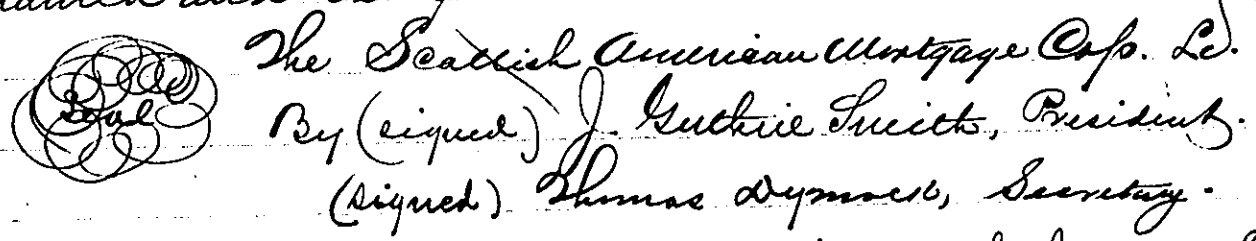 The Scottish American Mortgage Corp. Ld.
Seal
By (signed) J. Guthrie Smith, President.
(signed) Thomas Dymock, Secretary.